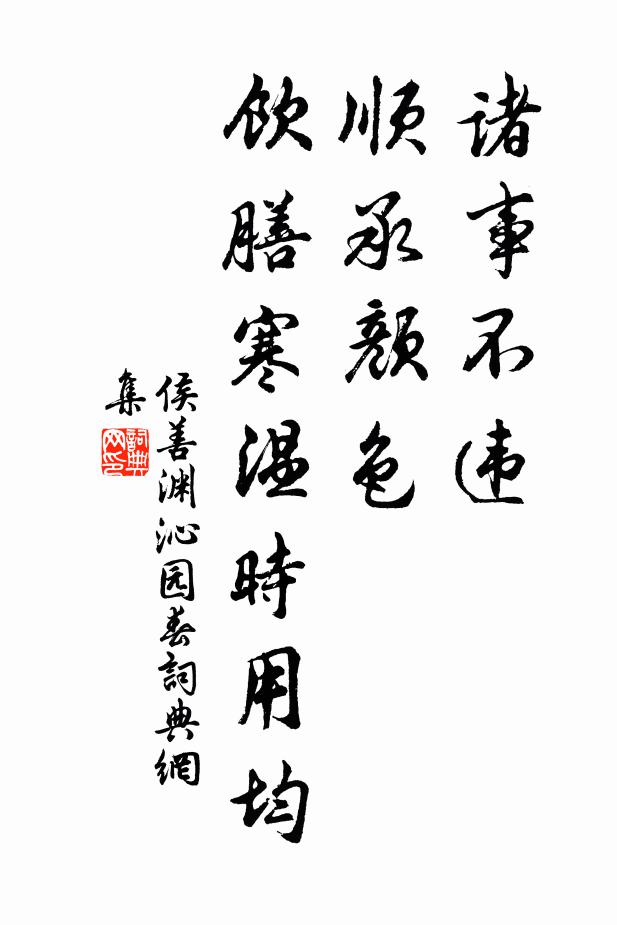 诸事不违
顺承颜色
饮膳寒温時用均
侯善渊沁园春詞典網
集
詞典
网印